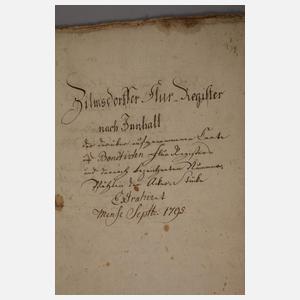 Zilmsdorffer Flur-Register
nach Innhalt
der darüber aufgenommenen Carte
Bonitirten Flur Registers
und darnach bezeichneten Nummer
der Acker-Stücke
Extrahiret
Mense Septbr. 1795